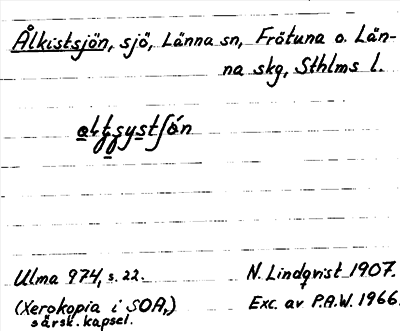 Ålkistsjön, sjö, Länna sn, Frötuna o. Län-
na skg, Sthlms l.
Ulma 974, s. 22.
N. Lindqvist 1907.
(Xerokopia i SOA,)
särsk. kapsel.
Exc. av P.A.W. 1966.